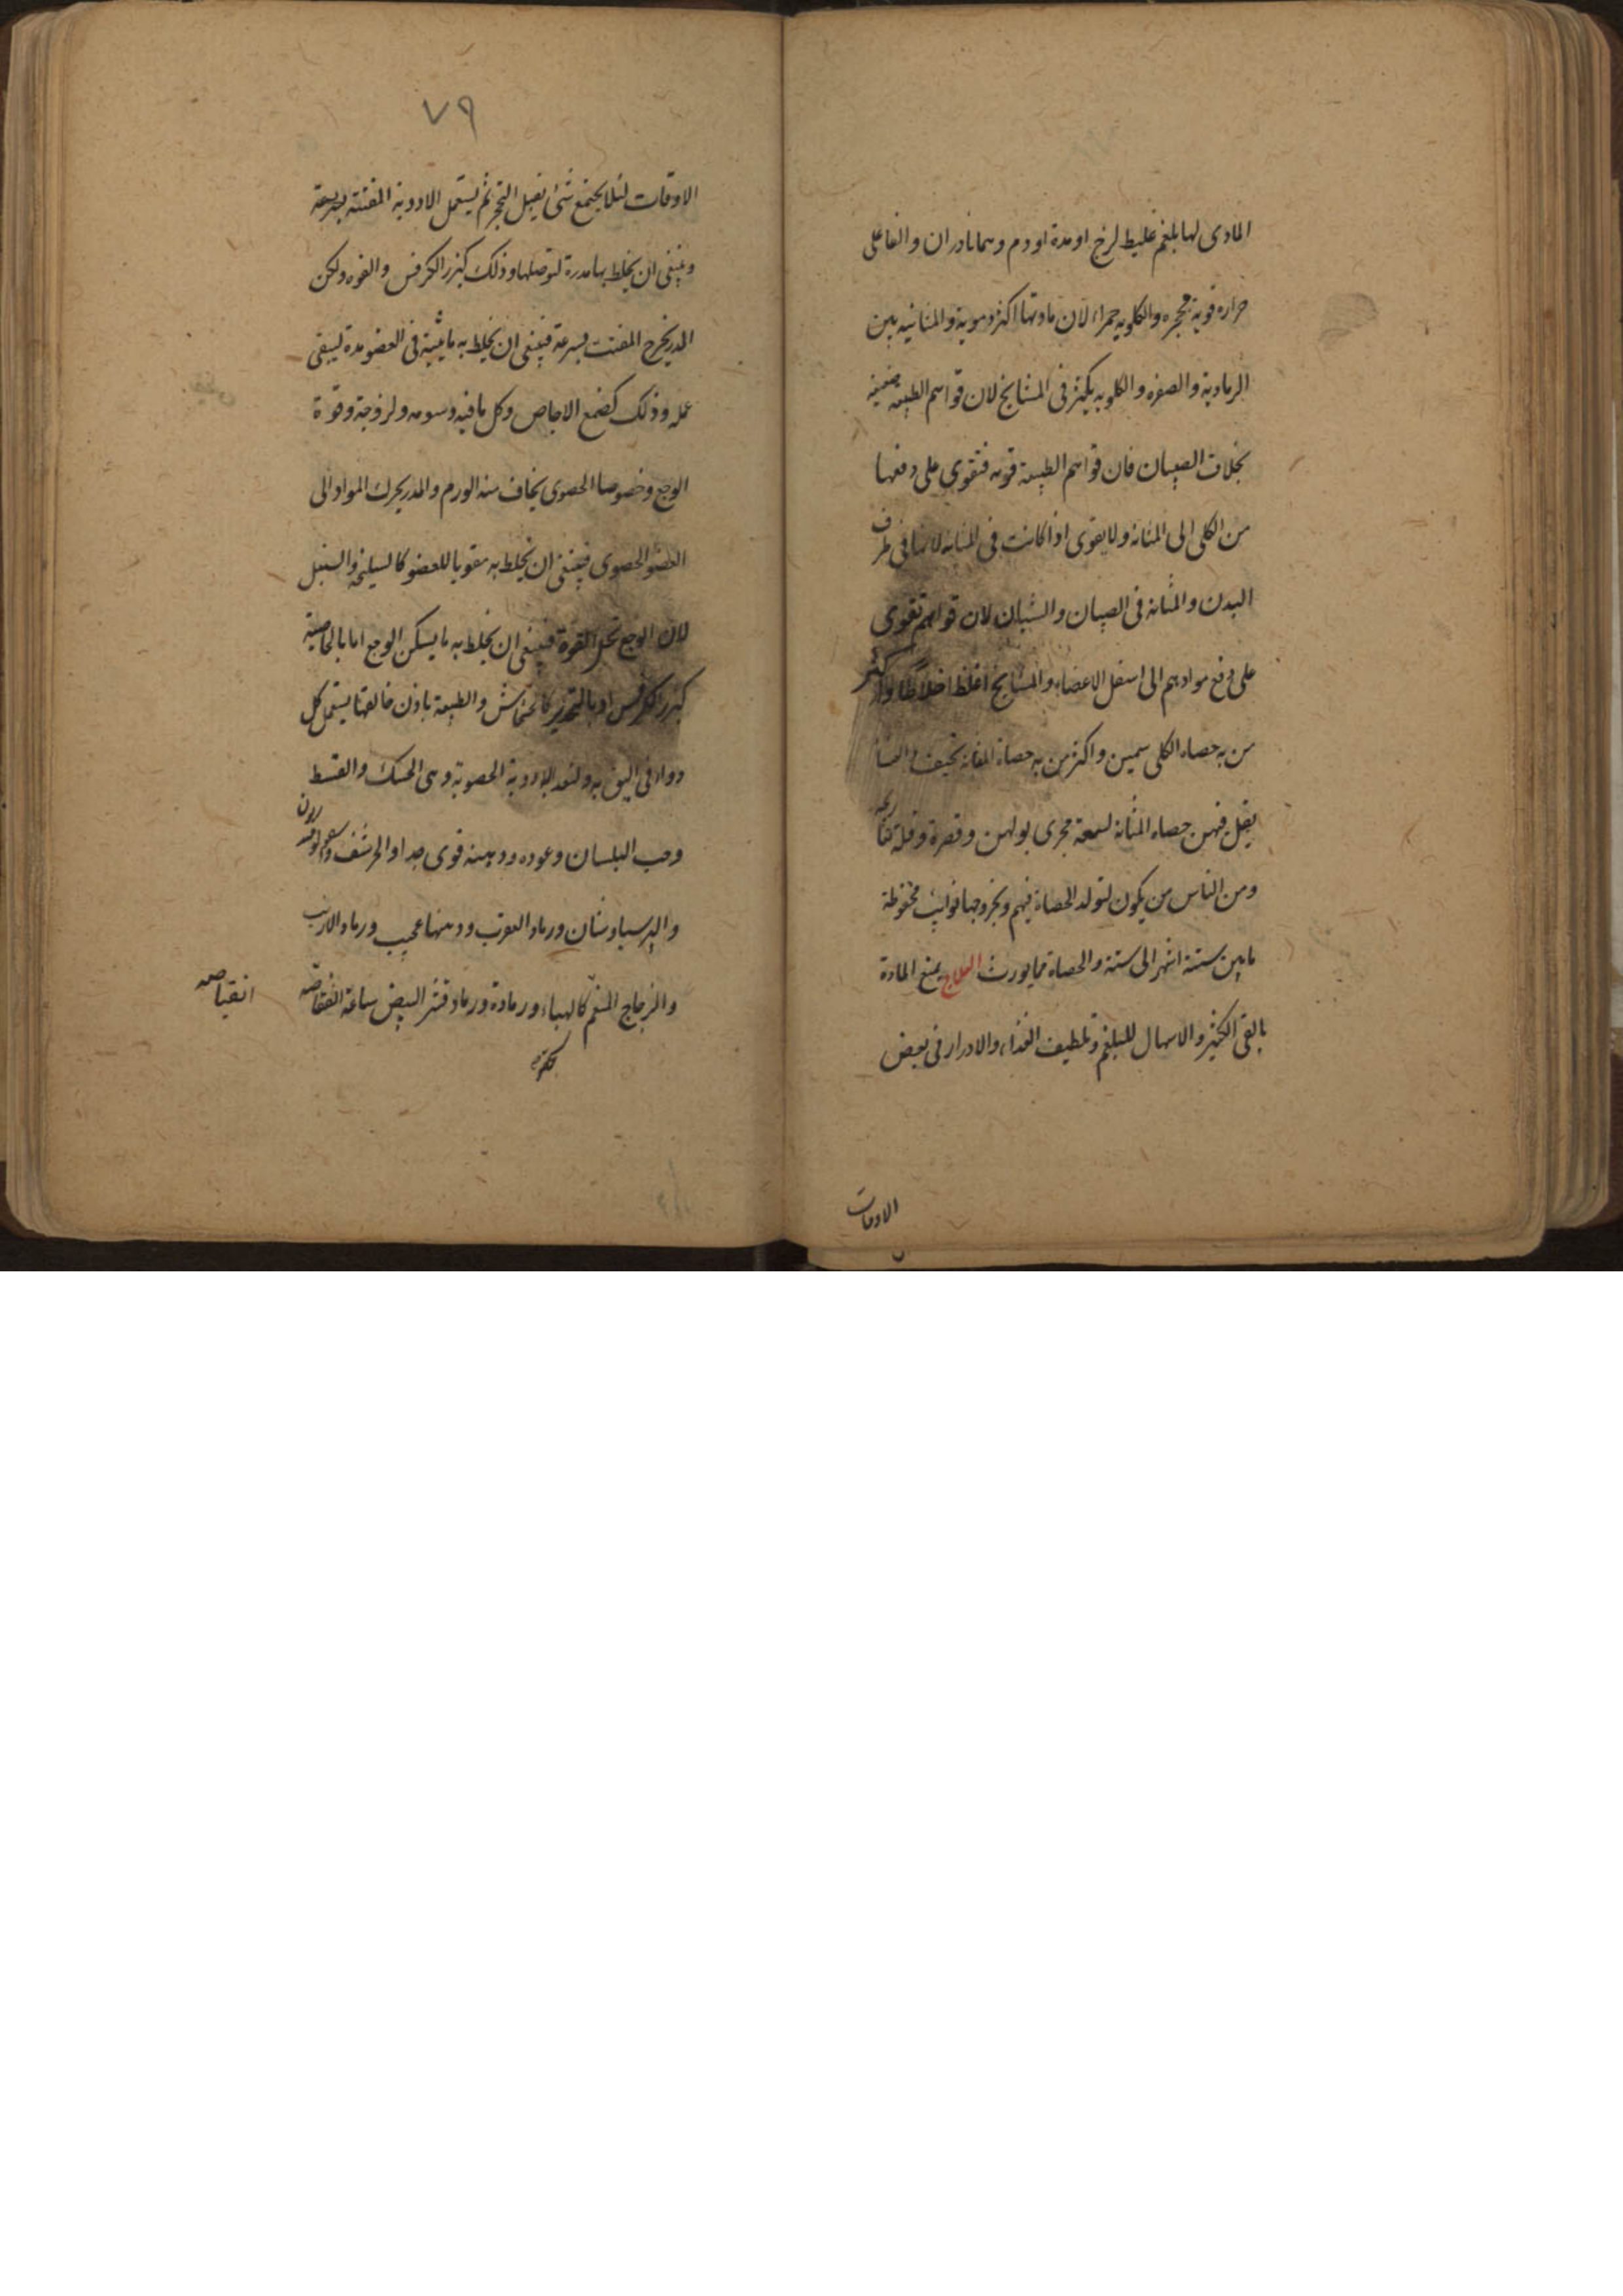 المادى لها بلغم غليظ لزج او مدة او دم وهما نادران والفاعلى
حراره قوية محجره والكلويه حمراء لان مادتها اكثر دموية والمثانيه بين
الرمادية والصفره والكلويه يكثر فى المشايخ لان قواهم الطبيعيه ضعيفه
بخلاف الصبيان فان قواهم الطبيعة قويه فتقوى على دفعها
من الكلى الى المثانه ولا يقوى اذا كانت فى المثانه لانها فى طرف
البدن والمثانه فى الصبيان والشبان لان قواهم تقوى
على دفع موادهم الى اسفل الاعضاء والمشايخ اغلظ اخلاطا واكثر
من به حصاه الكلى سمين واكثر من به حصاة المثانه نحيف والنسا
يقل فيهن حصاه المثانة لسعة مجرى بولهن وقصرة وقلة تعاريجه
ومن الناس من يكون لتولد الحصاة فيهم وبخروجها نوايب محفوظة
ما بين ستة اشهر الى سنة والحصاة مما يورث العلاج يمنع المادة
بالقى الكثير والاسهال للبلغم وتلطيف الغذاء والادرار فى بعض
الاوقات
٧٩
الاوقات لئلا يجتمع شئ يقبل التحجر ثم يستعمل الادوية المفتتة بسرعة
وينبغى ان يخلط بها مدرة لتوصلها وذلك كبزر الكرفس والفوه ولكن
المدر يخرج المفتت بسرعة فينبغى ان يخلط به ما يثبته فى العضو مدة ليبقى
عمله وذلك كصمغ الاجاص وكل ما فيه دسومه ولزوجة وقوة
الوجع وخصوصا الحصوى يخاف منه الورم والمدر يحرك المواد الى
العضو الحصوى فينبغى ان يخلط به مقويا للعضو كالسليخه والسنبل
لان الوجع تحل القوة فينبغى ان يخلط به ما يسكن الوجع اما بالخاصية
كبزر الكرفس او بالتخدير كالخشخاش والطبيعة باذن خالقها يستعمل كل
دواء فى اليق به ولنعد الادوية الحصوية وهى الحسك والقسط
وحب البلسان وعوده ودهنه قوى جدا والحرشف
والبرسياوشان ورماد العقرب ودهنها عجيب ورماد الارنب
والزجاج المنعم كالهباء ورمادة ورماد قشر البيض ساعة انفقاصه
انقياصه